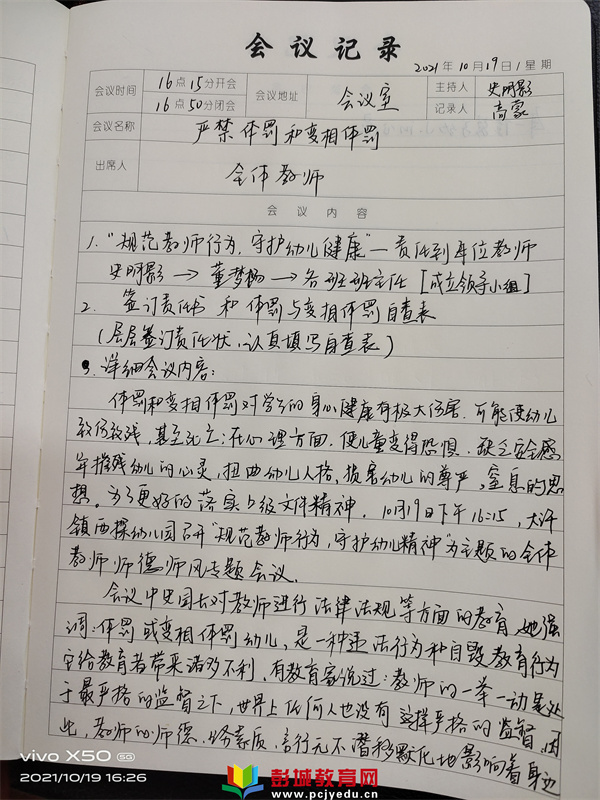 会议记录
2021年10月19日/星期
会议时间 16点15分开会 会议地址 会议室 主持人 史明影
16点50分闭会 记录人 高蒙
会议名称 严禁体罚和变相体罚
出席人 全体教师
会议内容
1. "规范教师行为，守护幼儿健康"—责任到每位教师
史明影→董梦杨→各班班主任[成立领导小组]
2. 签订责任书 和 体罚与变相体罚自查表
(层层签订责任状，认真填写自查表)
3. 详细会议内容：
体罚和变相体罚对学生的身心健康有极大伤害，可能使幼儿
致伤致残，甚至死亡；在心理方面，使儿童变得恐惧、缺乏安全感
摧残幼儿的心灵，扭曲幼儿人格，损害幼儿的尊严，窒息的思
想。为了更好的落实上级文件精神，10月19日下午16:15，大许
镇西探幼儿园召开"规范教师行为，守护幼儿精神"为主题的全体
教师师德师风专题会议。
会议中史园长对教师进行法律法规等方面的教育，她强
调：体罚或变相体罚幼儿，是一种违法行为和自毁教育行为
它给教育者带来诸多不利，有教育家说过：教师的一举一动是处
于最严格的监督之下，世界上任何人也没有这样严格的监督，因
此，教师的师德、业务素质、言行无不潜移默化地影响着身边
vivo X50 5G
2021/10/19 16:26
彭城教育网
www.pcjyedu.cn